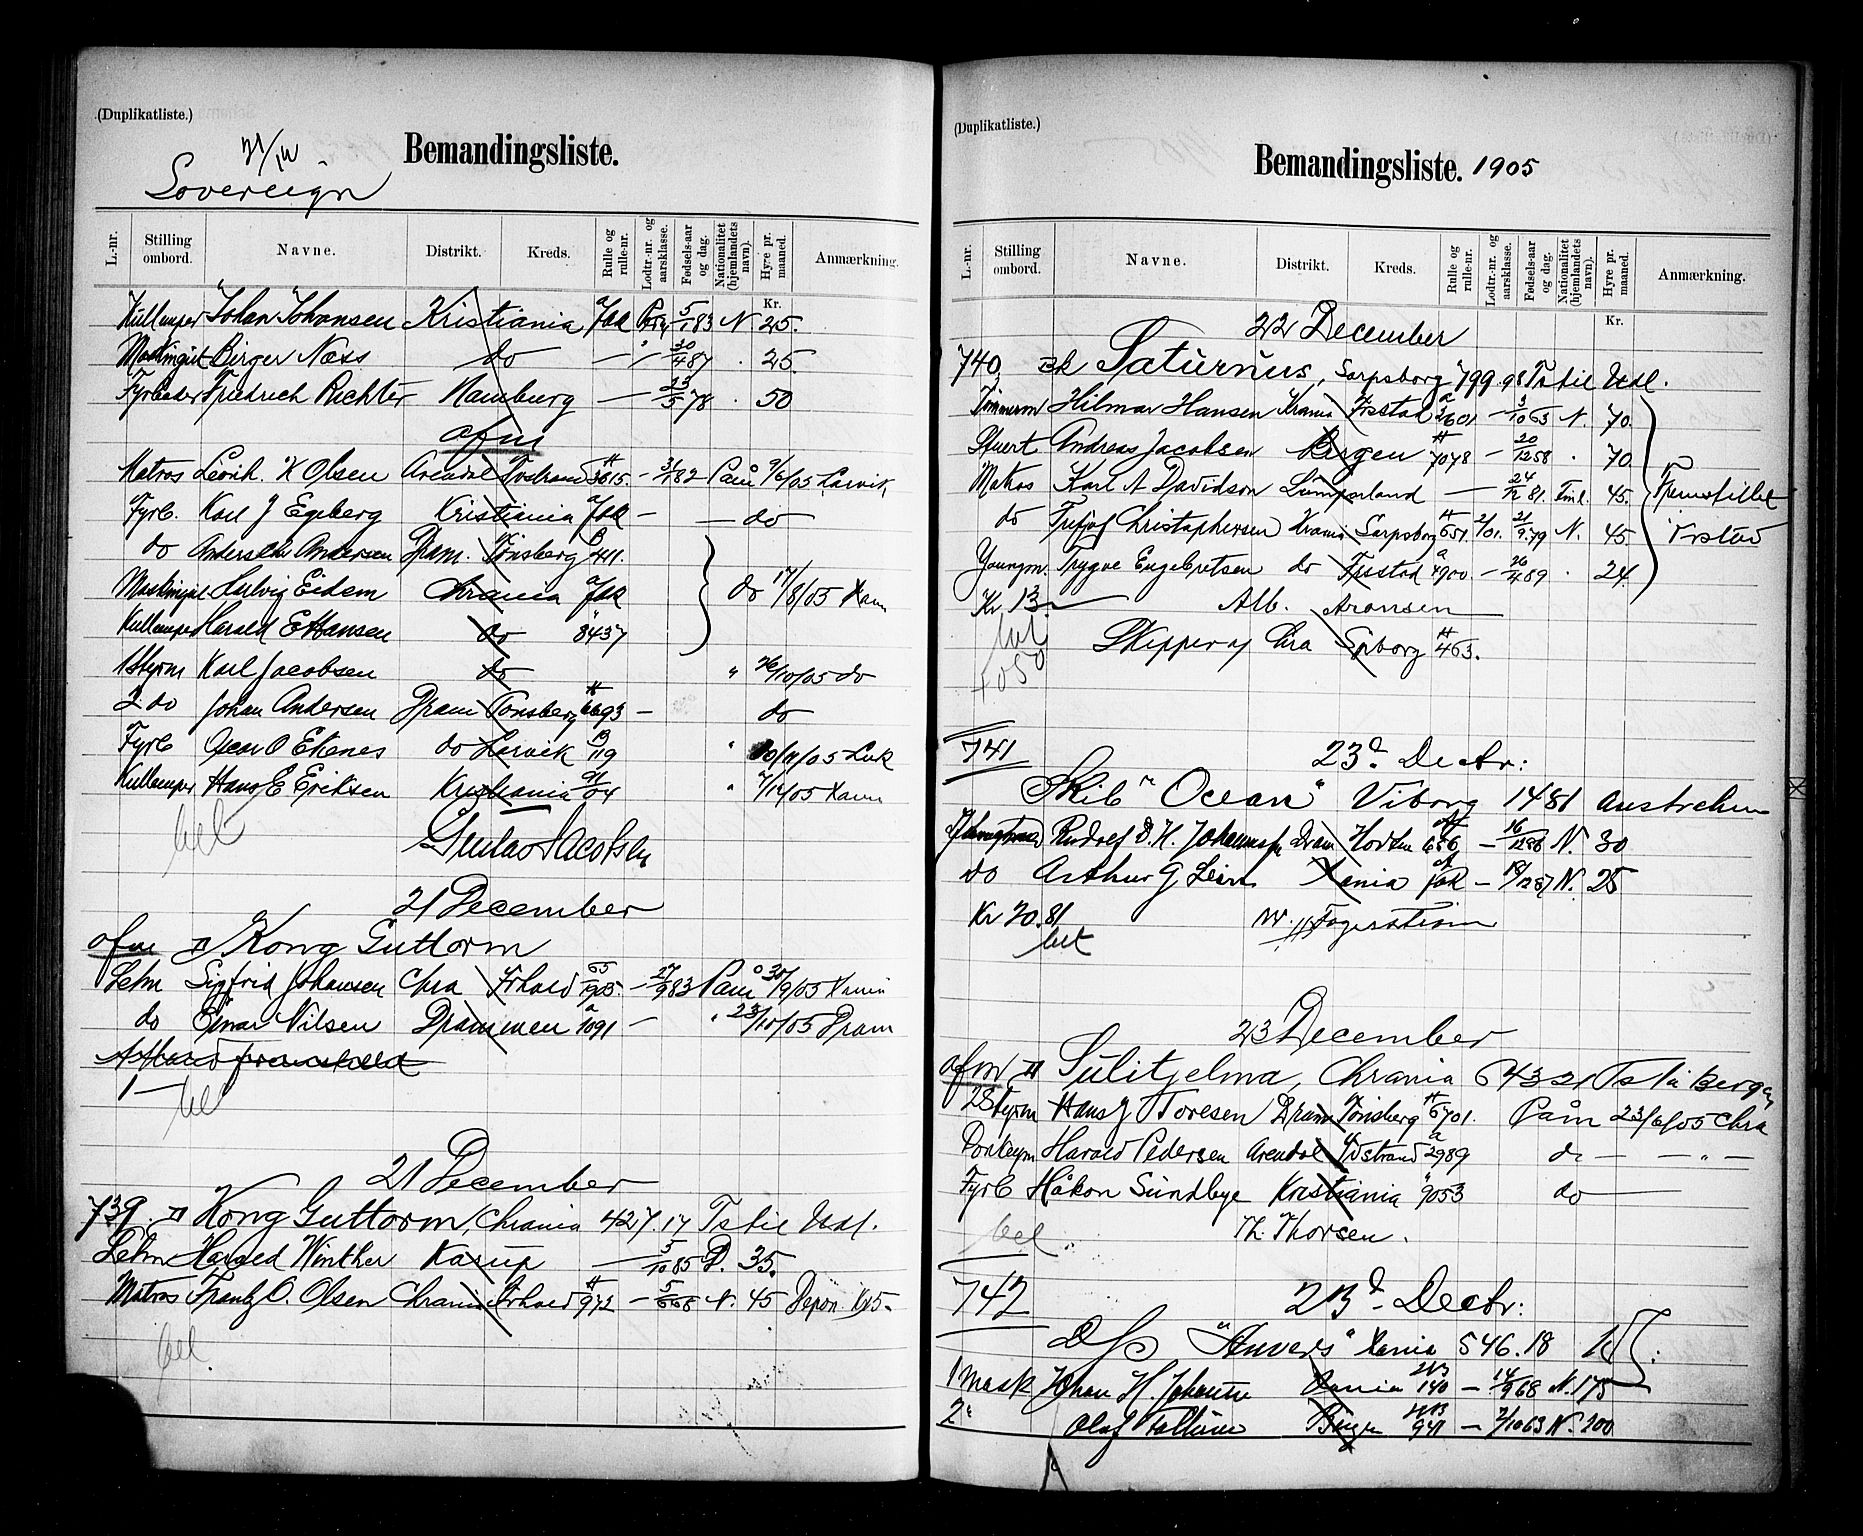 (Duplikatliste.)
Bemandingsliste.
Sovereign
L.-nr. Stilling ombord. Navne. Distrikt. Kreds. Rulle og rulle-nr. Lodtr.-nr. og aarsklasse. Fødsels-aar og dag. Nationalitet (hjemlandets navn). Hyre pr. maaned. Anmærkning.
Kr.
Kullemper Johan Johansen Kristiania 5/1 83 N 25.
Birger Næss do 30/4 87 25
Fyrbøder Friedrich Richter Hamburg — 23/5 78 50
afm
Matros H Olsen Arendal Tvedestrand H 3615 — 3/1 82 Påm 9/6/05 Larvik
Fyrb. Karl J Egeberg Kristiania — — do
do Andersen Dram. Tønsberg B 411.
Eidem Chrania do 17/8/05 Xania
Kullemper Harald E Hansen do 8437
1 Styrm Karl Jacobsen do " 26/10/05 do
2 do Johan Andersen Dram Tønsberg H 6693 — do
Fyrb Oscar O Ekenes do Larvik B 119 " 10/11/05
Kullemper Hans E Eriksen Kristiania 04 " Xania
bet
Gustav Jacobsen
21 December
afm Kong Guttorm
Letm Sigfrid Johansen Chra Frhald 65/1905 — 27/9 83 Påm 30/9/05 Xania
do Einar Nilsen Drammen a 1091 — " 23/10/05 Dram
1 —
bet
21 December
739. Kong Guttorm, Chrania 427.17 Tstil Udl.
Letm Harald Winther Karup — 5/10 85 D. 35.
Matros Frantz O. Olsen Chrania Frhald H 972 — 5/6 68 N. 45 Depon. Kr 5-
bet
(Duplikatliste.)
Bemandingsliste. 1905
L.-nr. Stilling ombord. Navne. Distrikt. Kreds. Rulle og rulle-nr. Lodtr.-nr. og aarsklasse. Fødsels-aar og dag. Nationalitet (hjemlandets navn). Hyre pr. maaned. Anmærkning.
Kr.
22 December
740 Saturnus, Sarpsborg 799.98 Tstil Udl.
Tømmerm Hilmar Hansen Krania Frstad a 2601 — 3/10 63 N. 70.
Stuert Andreas Jacobsen Bergen H 7078 — 20/12 58 . 70
Matros Karl A Davidson — 24/12 81. Finl. 45.
do Christophersen Krania Sarpsborg H 651 2/01. 21/9 79 N. 45. Frstad
Youngm. Trygve Engebretsen do Frstad a 4900. — 26/4 89 . 24.
Kr. 13 — Alb. Aronsen
bet
Skipper af Chra Spborg H 463.
4050
741
23d Decbr:
Skib "Ocean" Viborg 1481 Australien
Rudolf D. H. Dram Horten 686 — 16/12 86 N. 30
do Arthur G Xania — 18/12 87 N. 25
Kr 20.81
bet
23 December
afm Sulitjelma, Chrania 643.21 Bergen
2 Styrm Hans J Toresen Dram Tønsberg H 6701. Påm 23/6/05 Chra
Harald Pedersen Arendal Tvdstrand a 2989 do — — " —
Fyrb Håkon Sundbye Kristiania 9053 do —
bet
Th. Thorsen.
742
23d Decbr:
D/S "Anvers" Xania 546.18
1 Mask Johan H. Xania 140 — 14/9 68 N. 175
2 " Olaf Bergen 941 — 7/10 63 N. 100